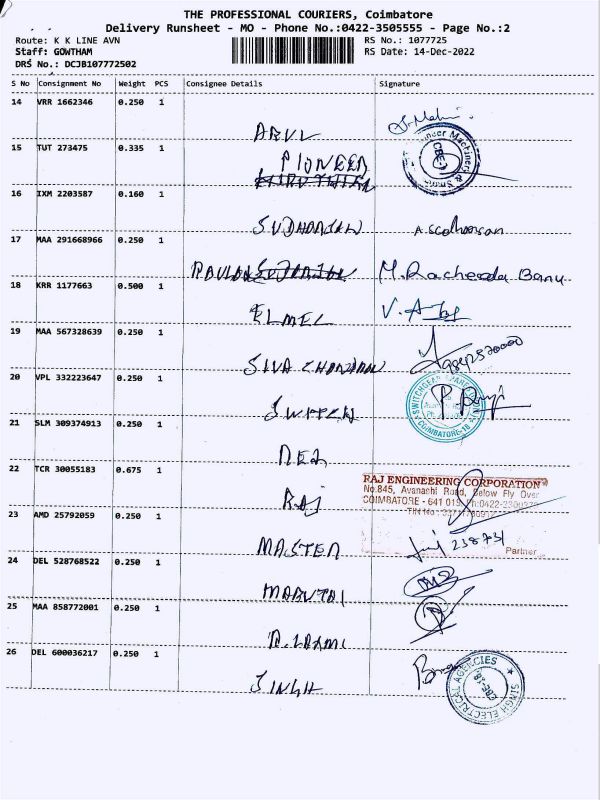 THE PROFESSIONAL COURIERS, Coimbatore
Delivery Runsheet - MO - Phone No.:0422-3505555 - Page No.:2
Route: K K LINE AVN
RS No.: 1077725
Staff: GOWTHAM
RS Date: 14-Dec-2022
DRS No.: DCJB107772502
S No Consignment No Weight PCS Consignee Details Signature
14 VRR 1662346 0.250 1
ARUL
15 TUT 273475 0.335 1
PIONEER
16 IXM 2203587 0.160 1
SUDHARSAN A. Sudharsan
17 MAA 291668966 0.250 1
M. Racheeda Banu
18 KRR 1177663 0.500 1
ELMEC
19 MAA 567328639 0.250 1
SIVA CHANDRAN
20 VPL 332223647 0.250 1
SWITCH
COIMBATORE-18
21 SLM 309374913 0.250 1
22 TCR 30055183 0.675 1
RAJ
RAJ ENGINEERING CORPORATION
No.845, Avanashi Road, Below Fly Over
COIMBATORE - 641 018
23 AMD 25792059 0.250 1
MASTER
Partner
24 DEL 528768522 0.250 1
MARUTHI
25 MAA 858772001 0.250 1
A. LAXMI
26 DEL 600036217 0.250 1
SINGH
SINGH ELECTRICAL AGENCIES
CBE-18